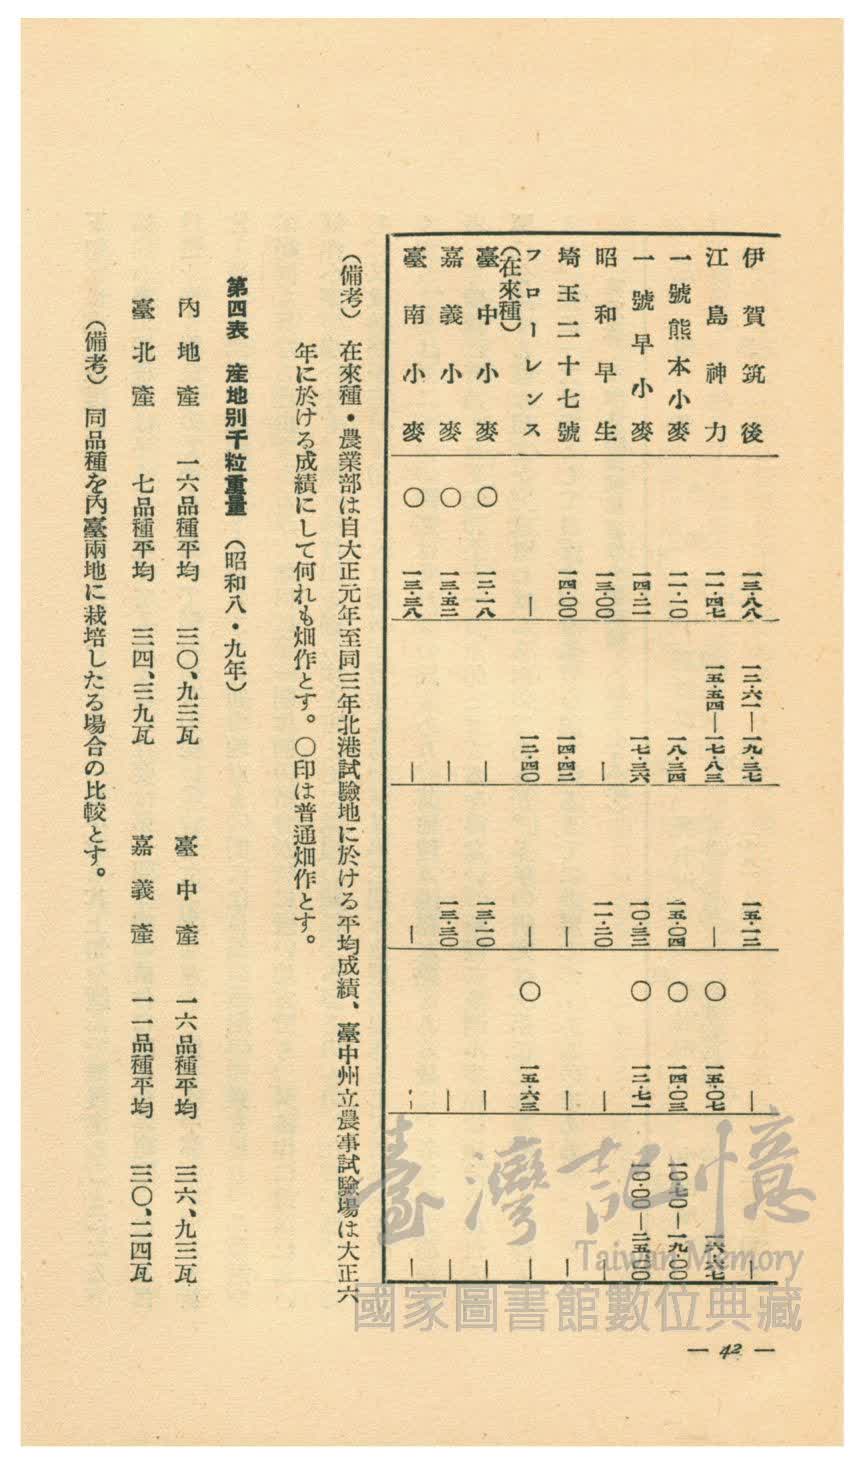 伊賀筑後 一三・八八 一二・六一―一九・三七 一五・一二 ― ―
江島神力 一一・四七 一五・五四―一七・八三 ― 〇 一五・〇七 一六・六七
一號熊本小麥 一一・一〇 一八・三四 一五・〇四 〇 一四・〇三 一〇・七〇―一九・〇〇
一號早小麥 一四・二一 一七・三六 一〇・三二 〇 一二・七一 一〇・〇〇―二五・〇〇
昭和早生 一三・〇〇 ― 一一・二〇 ― ―
埼玉二十七號 一四・〇〇 一四・四二 ― ― ―
フローレンス ― 一二・四〇 ― 〇 一五・六三 ―
(在來種)
臺中小麥 〇 一二・一八 ― 一三・一〇 ― ―
嘉義小麥 〇 一三・五二 ― 一三・三〇 ― ―
臺南小麥 〇 一三・三八 ― ― ― ―
(備考) 在來種・農業部は自大正元年至同三年北港試驗地に於ける平均成績、臺中州立農事試驗場は大正六
年に於ける成績にして何れも畑作とす。〇印は普通畑作とす。
第四表 產地別千粒重量 (昭和八・九年)
內地產 一六品種平均 三〇、九三瓦 臺中產 一六品種平均 三六、九三瓦
臺北產 七品種平均 三四、三九瓦 嘉義產 一一品種平均 三〇、二四瓦
(備考) 同品種を內臺兩地に栽培したる場合の比較とす。
― 42 ―
臺灣記憶
Taiwan Memory
國家圖書館數位典藏